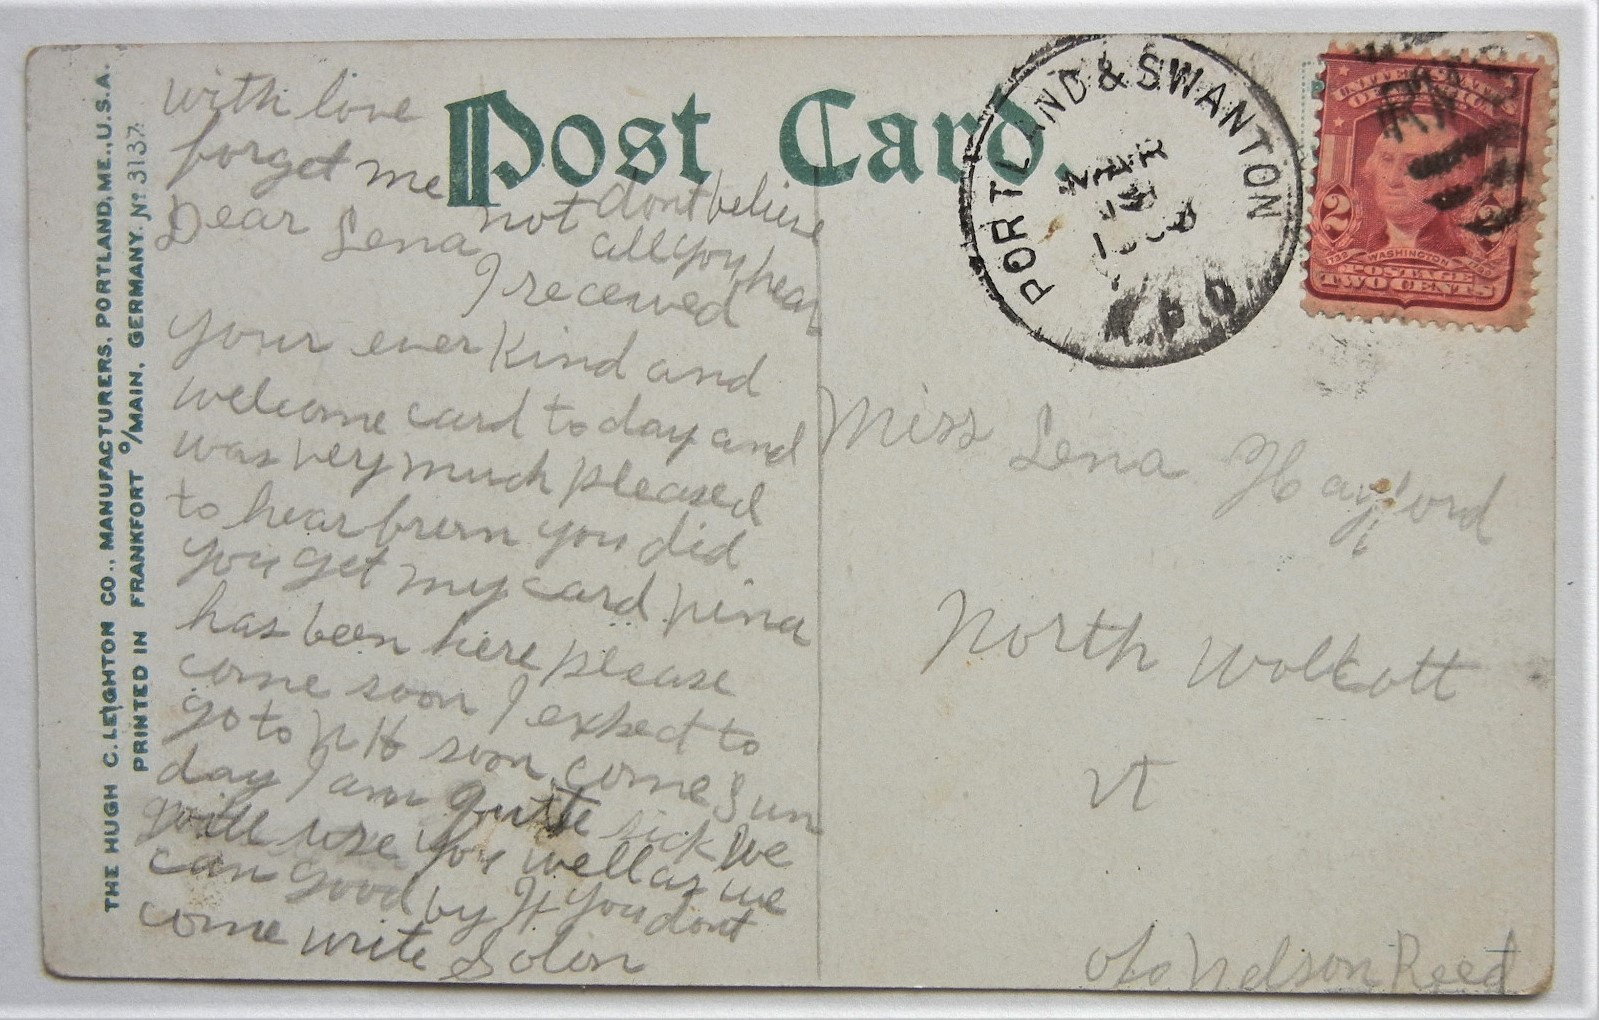 THE HUGH C. LEIGHTON CO., MANUFACTURERS, PORTLAND, ME., U.S.A.
PRINTED IN FRANKFORT o/MAIN, GERMANY. No 3137.
Post Card.
with love
forget me not
dont believe
all you hear
Dear Lena
I received
your ever kind and
welcome card to day and
was very much pleased
to hear from you did
you get my card nina
has been here please
come soon I expect to
go to N H soon come Sun
day I am quite sick We
will use you well as we
can good by If you dont
come write Solon
PORTLAND & SWANTON
MAR
R.P.O.
UNITED STATES
OF AMERICA
2
WASHINGTON
POSTAGE
TWO CENTS
Miss Lena Hayford
North Wolcott
Vt
c/o Nelson Reed